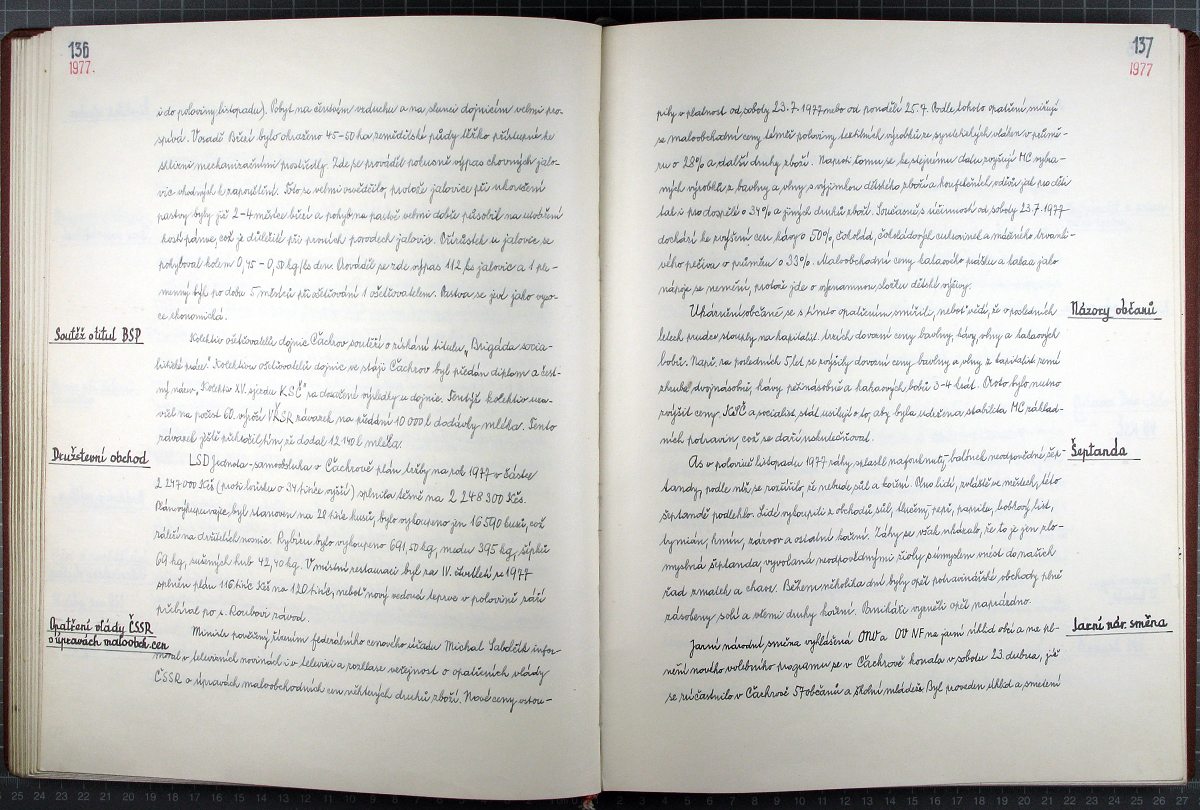 136
1977.
i do poloviny listopadu). Pobyt na čerstvém vzduchu a na slunci dojnicím velmi pro-
spívá. V osadě Březí bylo ohrazeno 45-50 ha zemědělské půdy těžko přístupné ke
sklizni mechanizačními prostředky. Zde se prováděl pokusně výpas chovných jalo-
vic vhodných k zapouštění. Toto se velmi osvědčilo, protože jalovice při ukončení
pastvy byly již 2-4 měsíce březí a pohyb na pastvě velmi dobře působil na utváření
kosti pánve, což je důležité při prvních porodech jalovic. Přírůstek u jalovic se
pohyboval kolem 0,45 - 0,50 kg/ks den. Prováděl se zde výpas 112 ks jalovic a 1 ple-
menný býk po dobu 5 měsíců při ošetřování 1 ošetřovatelem. Pastva se jeví jako vyso-
ce ekonomická.
Soutěž o titul BSP
Kolektiv ošetřovatelů dojnic Čachrov soutěží o získání titulu „Brigáda socia-
listické práce." Kolektivu ošetřovatelů dojnic ve stáji Čachrov byl předán diplom a čest-
ný název „Kolektiv XV. sjezdu KSČ" za dosažené výsledky u dojnic. Tentýž kolektiv uza-
vřel na počest 60. výročí VŘSR závazek na předání 10 000 l dodávky mléka. Tento
závazek ještě překročil tím, že dodal 12 140 l mléka.
Družstevní obchod
LSD Jednota - samoobsluha v Čachrově plán tržby na rok 1977 v částce
2 247 000 Kčs (proti loňsku o 34 tisíce vyšší) splnila těsně na 2 248 300 Kčs.
Plán výkupu vajec, byl stanoven na 28 tisíc kusů, bylo vykoupeno jen 16 590 kusů, což
záleží na držitelích nosnic. Rybízu bylo vykoupeno 691,50 kg, medu 395 kg, šípků
69 kg, sušených hub 42,40 kg. V místní restauraci byl za IV. čtvrtletí r. 1977
splněn plán 116 tisíc Kčs na 120 tisíc, neboť nový vedoucí teprve v polovině září
přebíral po s. Roubovi závod.
Opatření vlády ČSSR
o úpravách maloobch. cen
Ministr pověřený řízením federálního cenového úřadu Michal Sabolčík infor-
moval v televizních novinách i v televizi a rozhlase veřejnost o opatřeních vlády
ČSSR o úpravách maloobchodních cen některých druhů zboží. Nové ceny vstou-
137
1977
pily v platnost od soboty 23.7.1977 nebo od pondělí 25.7. Podle tohoto opatření snižují
se maloobchodní ceny téměř poloviny textilních výrobků ze syntetických vláken v průmě-
ru o 28% a další druhy zboží. Naproti tomu se ke stejnému datu zvyšují MC vybra-
ných výrobků z bavlny a vlny s výjimkou dětského zboží a konfekčních oděvů jak pro děti
tak i pro dospělé o 34% a jiných druhů zboží. Současně s účinností od soboty 23.7.1977
dochází ke zvýšení cen kávy o 50%, čokolád, čokoládových cukrovinek a máčeného trvanli-
vého pečiva v průměru o 33%. Maloobchodní ceny kakaového prášku a kakaa jako
nápoje se nemění, protože jde o významnou složku dětské výživy.
Názory občanů
Uvědomělí občané se s tímto opatřením smířili, neboť vědí, že v posledních
letech prudce stouply na kapitalist. trzích dovozní ceny bavlny, kávy, vlny a kakaových
bobů. Např. za posledních 5 let se zvýšily dovozní ceny bavlny a vlny z kapitalist. zemí
zhruba dvojnásobně, kávy pětinásobně a kakaových bobů 3-4 krát. Proto bylo nutno
zvýšit ceny. KSČ a socialist. stát usilují o to, aby byla udržena stabilita MC základ-
ních potravin, což se daří uskutečňovat.
Šeptanda
As v polovině listopadu 1977 záhy splaskl nafouknutý balónek neodpovědné šep-
tandy, podle níž se rozšířilo, že nebude sůl a koření. Plno lidí, zvláště ve městech, této
šeptandě podlehlo. Lidé vykoupili z obchodů sůl, tlučený pepř, papriku, bobkový list,
tymián, kmín, zázvor a ostatní koření. Záhy se však ukázalo, že to je jen zlo-
myslná šeptanda, vyvolaná neodpovědnými živly s úmyslem vnést do našich
řad zmatek a chaos. Během několika dní byly opět potravinářské obchody plně
zásobeny solí a všemi druhy koření. Panikáři vyzněli opět naprázdno.
Jarní nár. směna
Jarní národní směna vyhlášená ONV a OV NF na jarní úklid obcí a na pl-
nění nového volebního programu se v Čachrově konala v sobotu 23. dubna, jíž
se zúčastnilo v Čachrově 57 občanů a školní mládeže. Byl proveden úklid a smetení